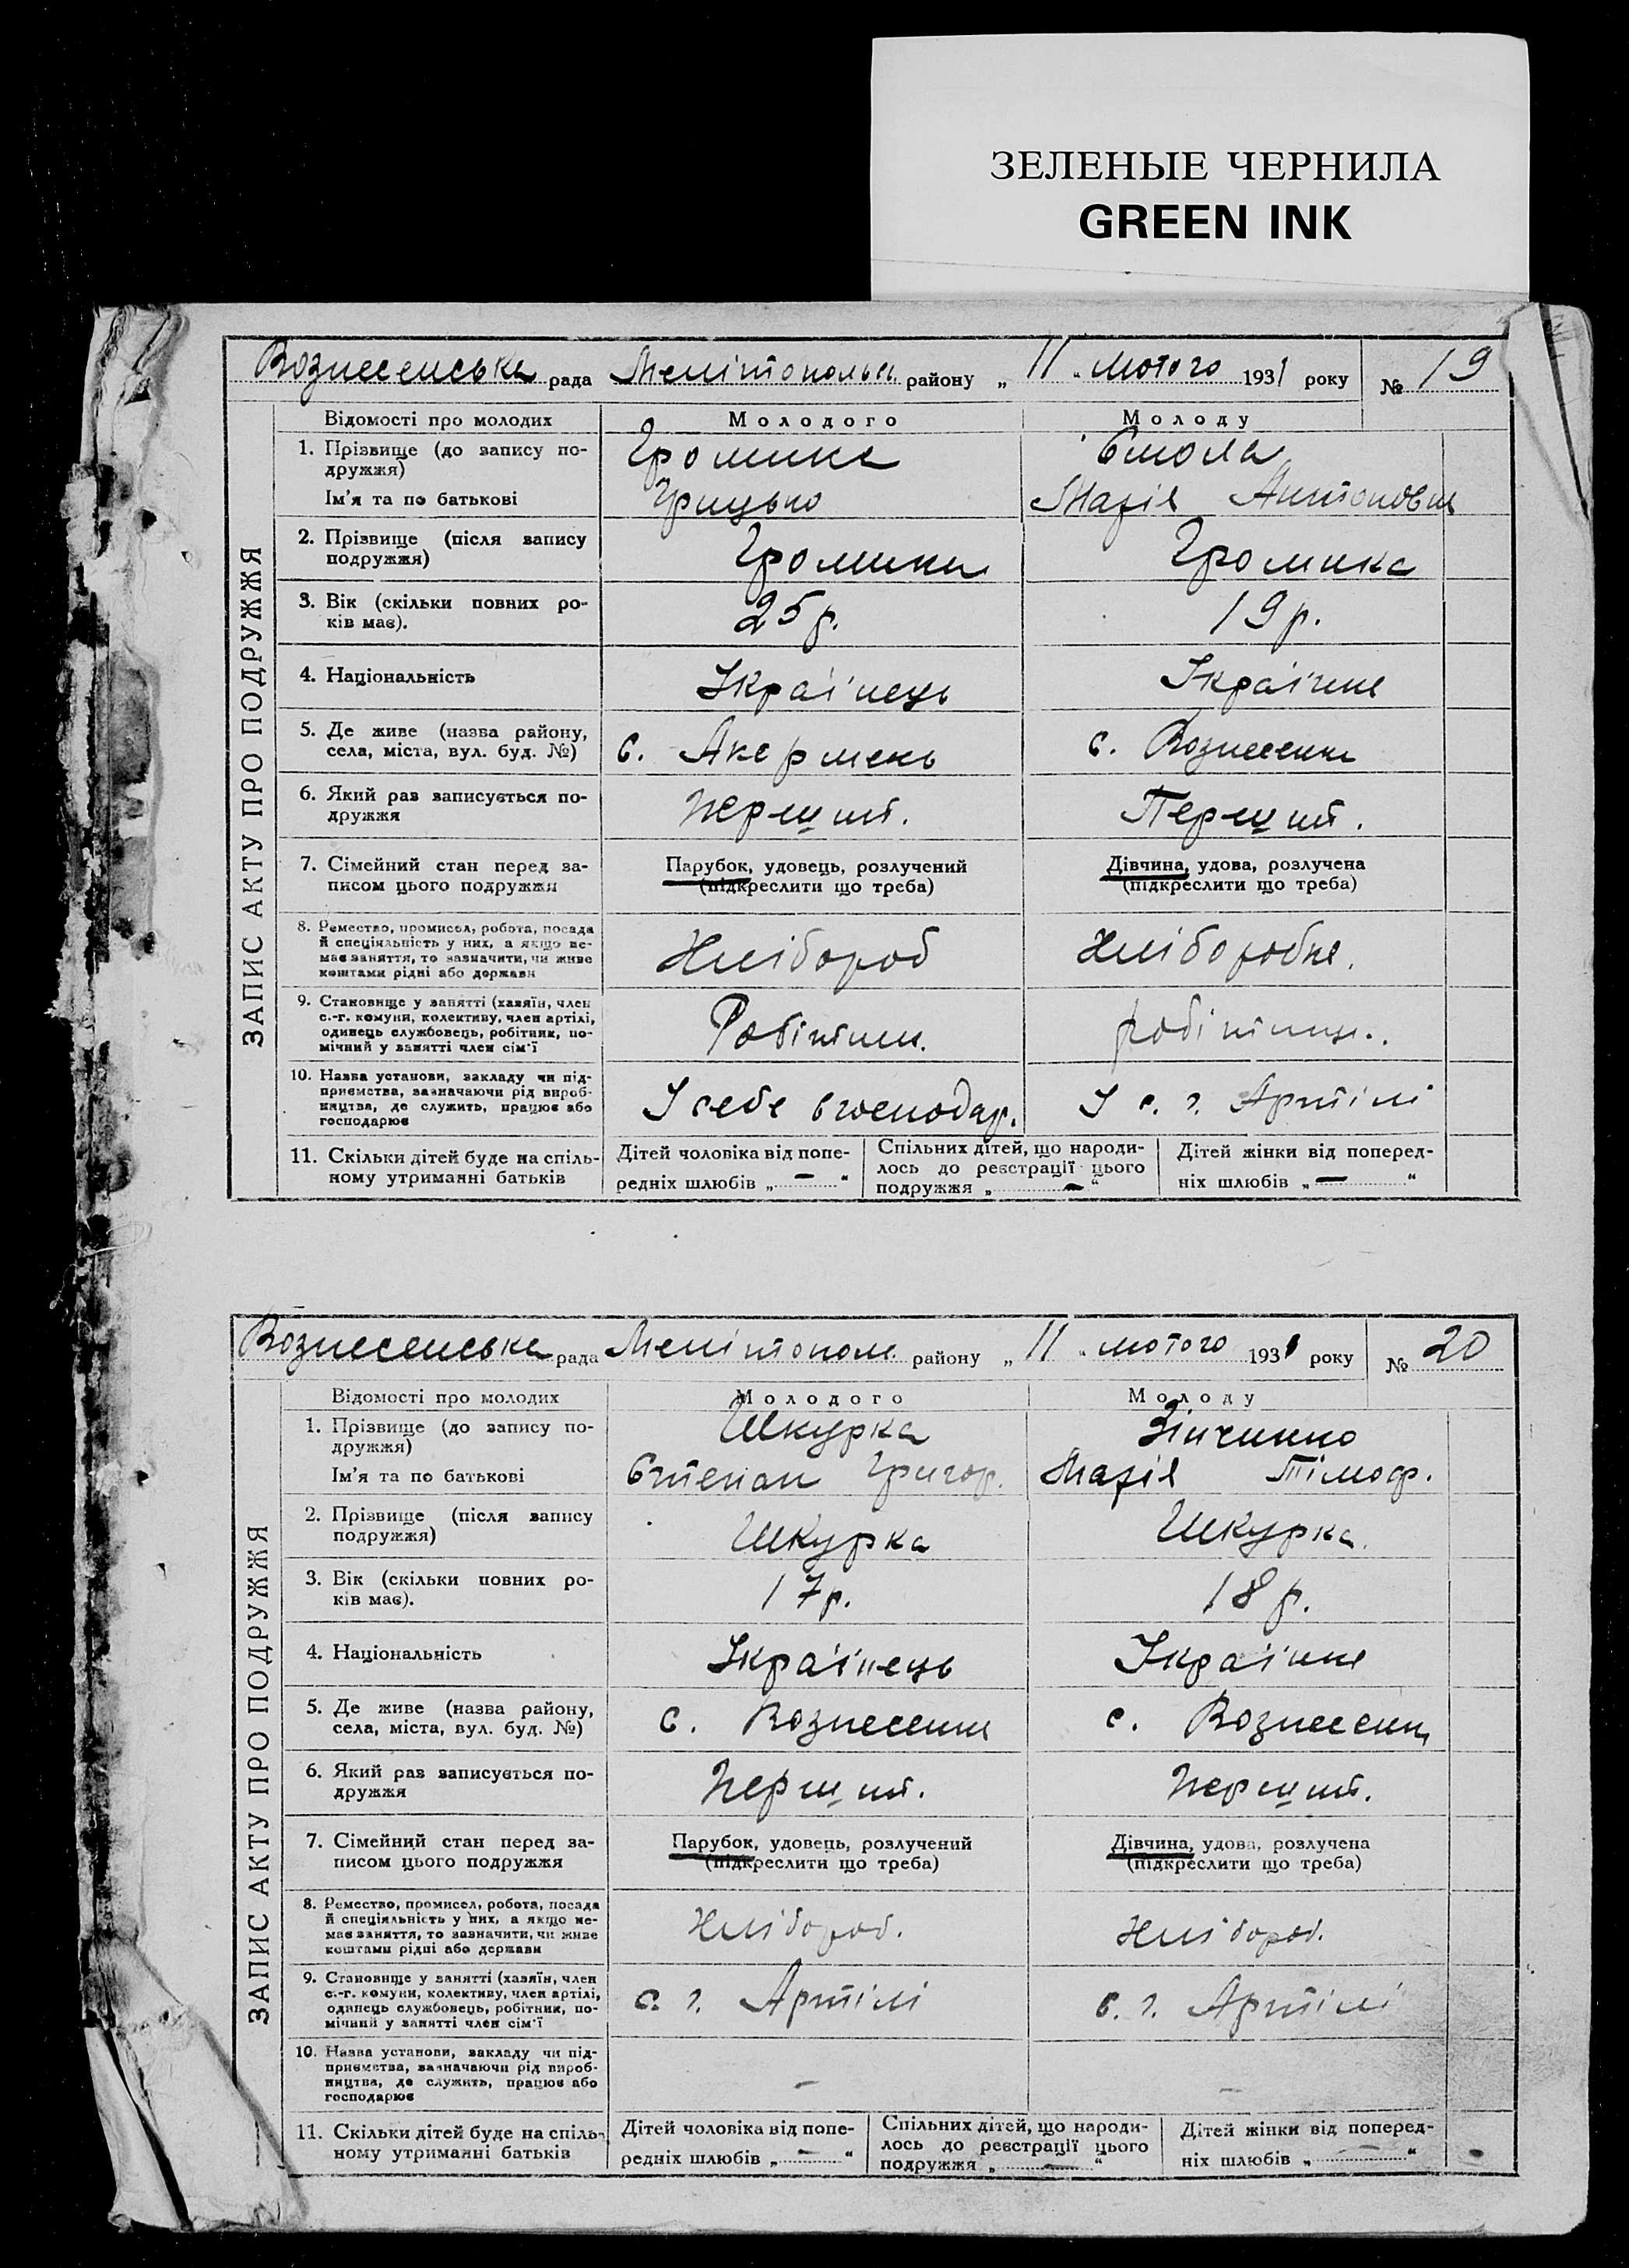 ЗЕЛЕНЫЕ ЧЕРНИЛА
GREEN INK
Вознесенська рада Мелітопольск району „ 11 „ лютого 1931 року № 19
ЗАПИС АКТУ ПРО ПОДРУЖЖЯ
Відомості про молодих Молодого Молоду
1. Прізвище (до запису по-
дружжя) Громика Смола
Ім'я та по батькові Грицько Марія Антоновна
2. Прізвище (після запису
подружжя) Громика Громика
3. Вік (скільки повних ро-
ків має). 25 р. 19 р.
4. Національність Українець Українка
5. Де живе (назва району,
села, міста, вул. буд. №) с. Акермень с. Вознесенка
6. Який раз записується по-
дружжя Перший. Перший.
7. Сімейний стан перед за- Парубок, удовець, розлучений Дівчина, удова, розлучена
писом цього подружжя (підкреслити що треба) (підкреслити що треба)
8. Ремество, промисел, робота, посада
й спеціяльність у них, а якщо не-
має заняття, то зазначити, чи живе
коштами рідні або держави Хлібороб Хліборобка.
9. Становище у занятті (хазяїн, член
с.-г. комуни, колективу, член артілі,
одинець службовець, робітник, по-
мічний у занятті член сім'ї Робітник. робітниц..
10. Назва установи, закладу чи під-
приємства, зазначаючи рід вироб-
ництва, де служить, працює або
господарює У себе в господар. У с. г. Артілі
11. Скільки дітей буде на спіль- Дітей чоловіка від попе- Спільних дітей, що народи- Дітей жінки від поперед-
ному утриманні батьків редніх шлюбів „ — “ лось до реєстрації цього ніх шлюбів „ — “
подружжя „ — “
Вознесенська рада Мелітопол району „ 11 „ лютого 1931 року № 20
ЗАПИС АКТУ ПРО ПОДРУЖЖЯ
Відомості про молодих Молодого Молоду
1. Прізвище (до запису по-
дружжя) Шкурка Зінченко
Ім'я та по батькові Степан Григор. Марія Тімоф.
2. Прізвище (після запису
подружжя) Шкурка Шкурка
3. Вік (скільки повних ро-
ків має). 17 р. 18 р.
4. Національність Українець Українка
5. Де живе (назва району,
села, міста, вул. буд. №) с. Вознесенка с. Вознесенка
6. Який раз записується по-
дружжя Перший. Перший.
7. Сімейний стан перед за- Парубок, удовець, розлучений Дівчина, удова, розлучена
писом цього подружжя (підкреслити що треба) (підкреслити що треба)
8. Ремество, промисел, робота, посада
й спеціяльність у них, а якщо не-
має заняття, то зазначити, чи живе
коштами рідні або держави Хлібороб. Хлібороб.
9. Становище у занятті (хазяїн, член
с.-г. комуни, колективу, член артілі,
одинець службовець, робітник, по-
мічний у занятті член сім'ї с. г. Артілі с. г. Артілі
10. Назва установи, закладу чи під-
приємства, зазначаючи рід вироб-
ництва, де служить, працює або
господарює — —
11. Скільки дітей буде на спіль- Дітей чоловіка від попе- Спільних дітей, що народи- Дітей жінки від поперед-
ному утриманні батьків редніх шлюбів „ — “ лось до реєстрації цього ніх шлюбів „ — “
подружжя „ — “